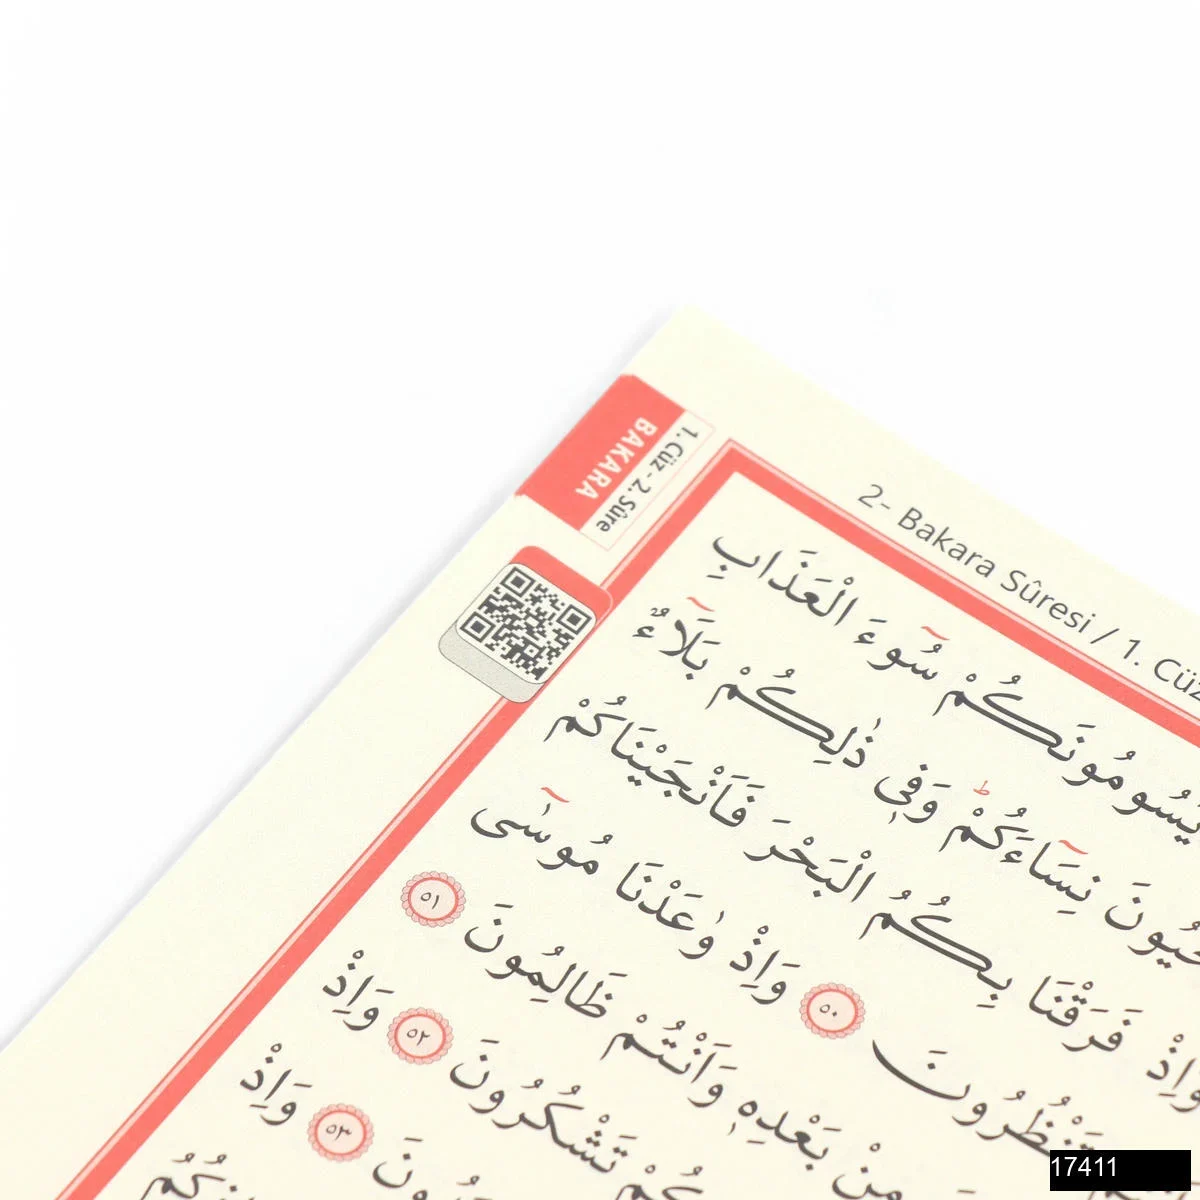 BAKARA
1. Cüz - 2. Sûre
2- Bakara Sûresi / 1. Cüz
يَسُومُونَكُمْ سُٓوءَ الْعَذَابِ
نِسَٓاءَكُمْۜ وَفٖي ذٰلِكُمْ بَلَٓاءٌ
فَرَقْنَا بِكُمُ الْبَحْرَ فَاَنْجَيْنَاكُمْ
تَنْظُرُونَ ٥٠ وَاِذْ وٰعَدْنَا مُوسٰٓى
مِنْ بَعْدِهٖ وَاَنْتُمْ ظَالِمُونَ ٥١
تَشْكُرُونَ ٥٢ وَاِذْ
٥٣ وَاِذْ
17411